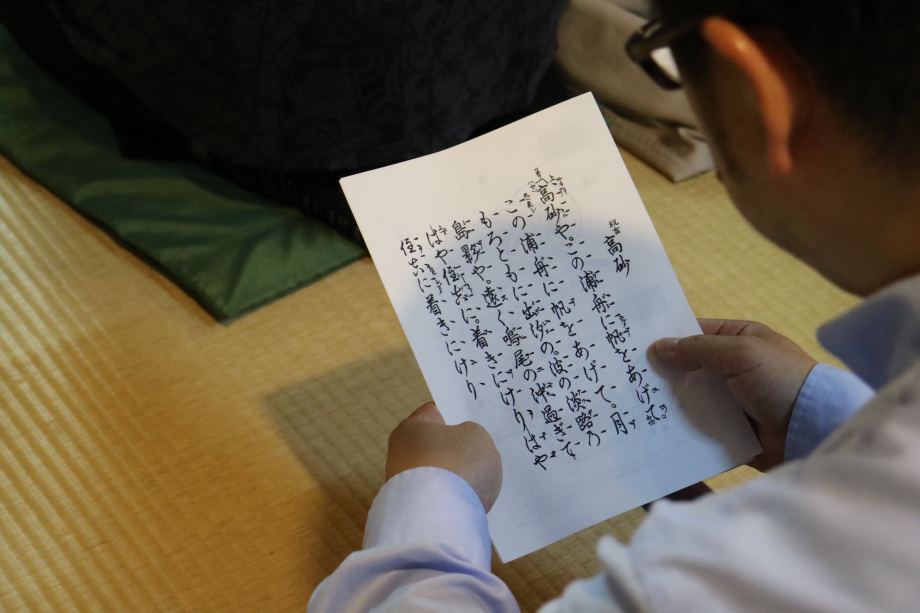 祝言 高砂
高砂や。この浦舟に帆をあげて。
この浦舟に帆をあげて。月
もろともに出汐の。波の淡路の
島影や。遠く鳴尾の沖過ぎて
はや住吉に。着きにけりはや
住吉に着きにけり